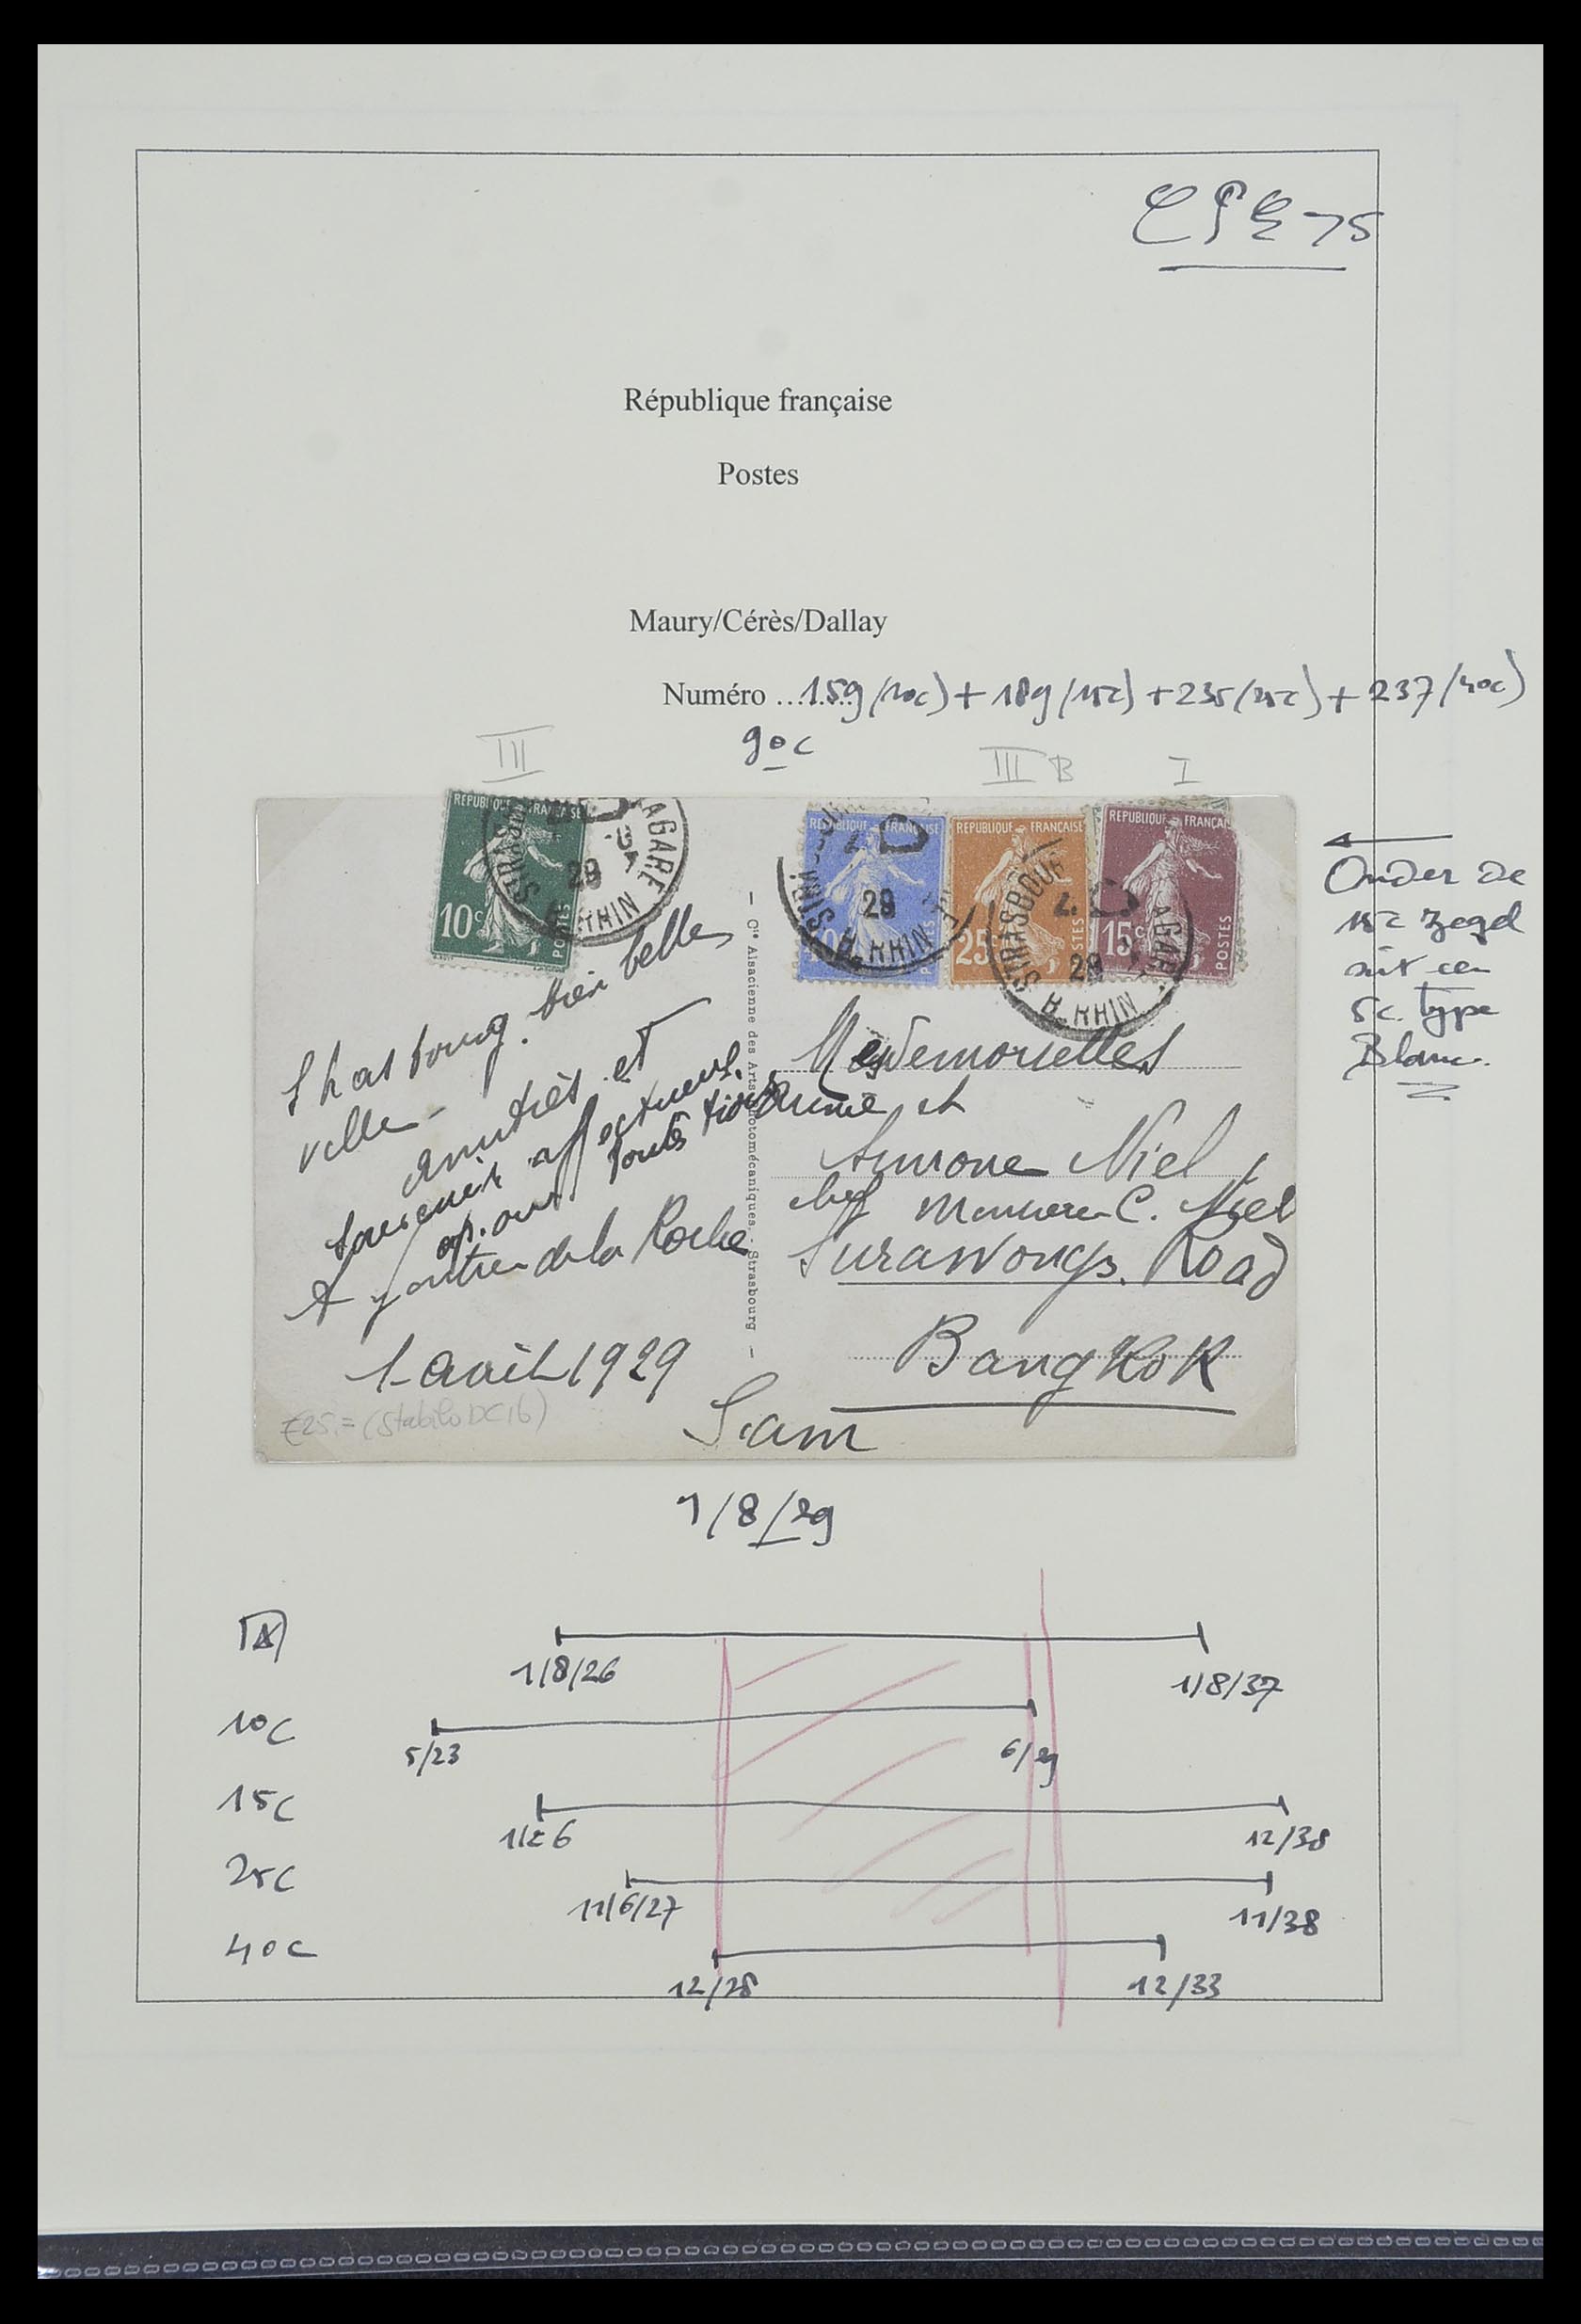 75
République française
Postes
Maury/Cérès/Dallay
Numéro ......... 159 (10c) + 189 (15c) + 235 (25c) + 237 (40c)
90c
III
III B
I
REPUBLIQUE FRANÇAISE
10c
POSTES
STRASBOURG GARE
29
B. RHIN
REPUBLIQUE FRANÇAISE
40c
POSTES
29
B. RHIN
REPUBLIQUE FRANÇAISE
25c
POSTES
REPUBLIQUE FRANÇAISE
15c
POSTES
STRASBOURG GARE
29
B. RHIN
Onder de
15c zegel
zit een
5c. type
Blanc.
Strasbourg. bien belle
ville -
amitiés et
souvenir affectueux
toutes
de la Roche
1 avril 1929
€25,= (Stabilo DC16)
— Cie Alsacienne des Arts Photomécaniques. - Strasbourg —
Mesdemoiselles
et
Simone Niel
chez Monsieur C. Niel
Surawongs. Road
Bangkok
Siam
1/8/29
1/8/26
1/8/37
10c
5/23
6/29
15c
1/26
12/38
25c
11/6/27
11/38
40c
12/28
12/33